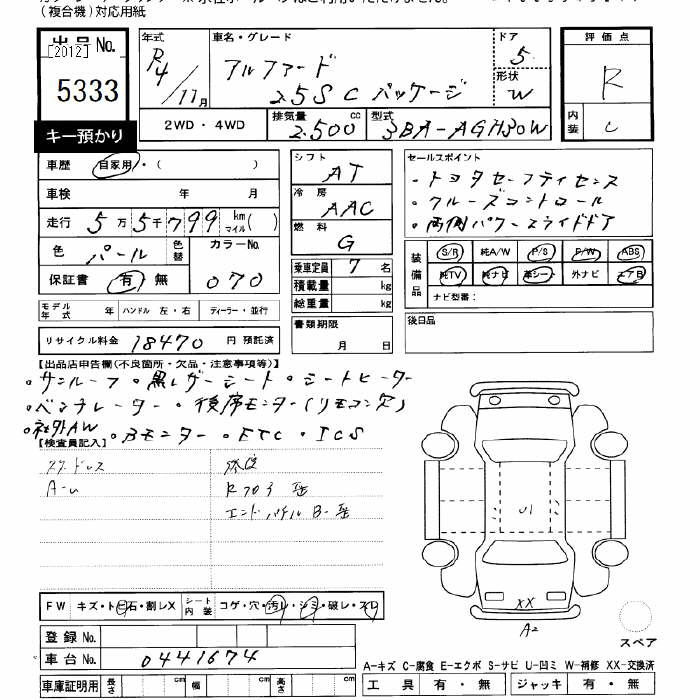 (複合機)対応用紙
出品No.
[2012]
5333
キー預かり
年式
R4/11月
車名・グレード
アルファード
2.5S C パッケージ
ドア
5
形状
W
評価点
R
内装
C
2WD・4WD
排気量
2.500cc
型式
3BA-AGH30W
車歴 自家用・( )
車検 年 月
走行 5万5千799km マイル( )
色 パール 色替
カラーNo.
070
保証書 有・無
シフト
AT
冷房
AAC
燃料
G
乗車定員 7名
積載量 kg
総重量 kg
書類期限
月 日
セールスポイント
・トヨタセーフティセンス
・クルーズコントロール
・両側パワースライドドア
装備品
S/R 純A/W P/S P/W ABS
純TV 純ナビ 革シート 外ナビ エアB
ナビ型番:
後日品
モデル年式 年 ハンドル 左・右 ディーラー・並行
リサイクル料金 18470円 預託済
【出品店申告欄(不良箇所・欠品・注意事項等)】
・サンルーフ・黒レザーシート・シートヒーター
・ベンチレーター・後席モニター(リモコン欠)
・社外AW・Bモニター・ETC・ICS
【検査員記入】
A-U
エンドパネル B-
U1
XX
A2
スペア
FW キズ・トビ石・割レX
シート内装 コゲ・穴・汚レ・シミ・破レ・スレ
登録No.
車台No. 0441674
車庫証明用 長さ cm 幅 cm 高さ cm
A-キズ C-腐食 E-エクボ S-サビ U-凹ミ W-補修 XX-交換済
工具 有・無 ジャッキ 有・無